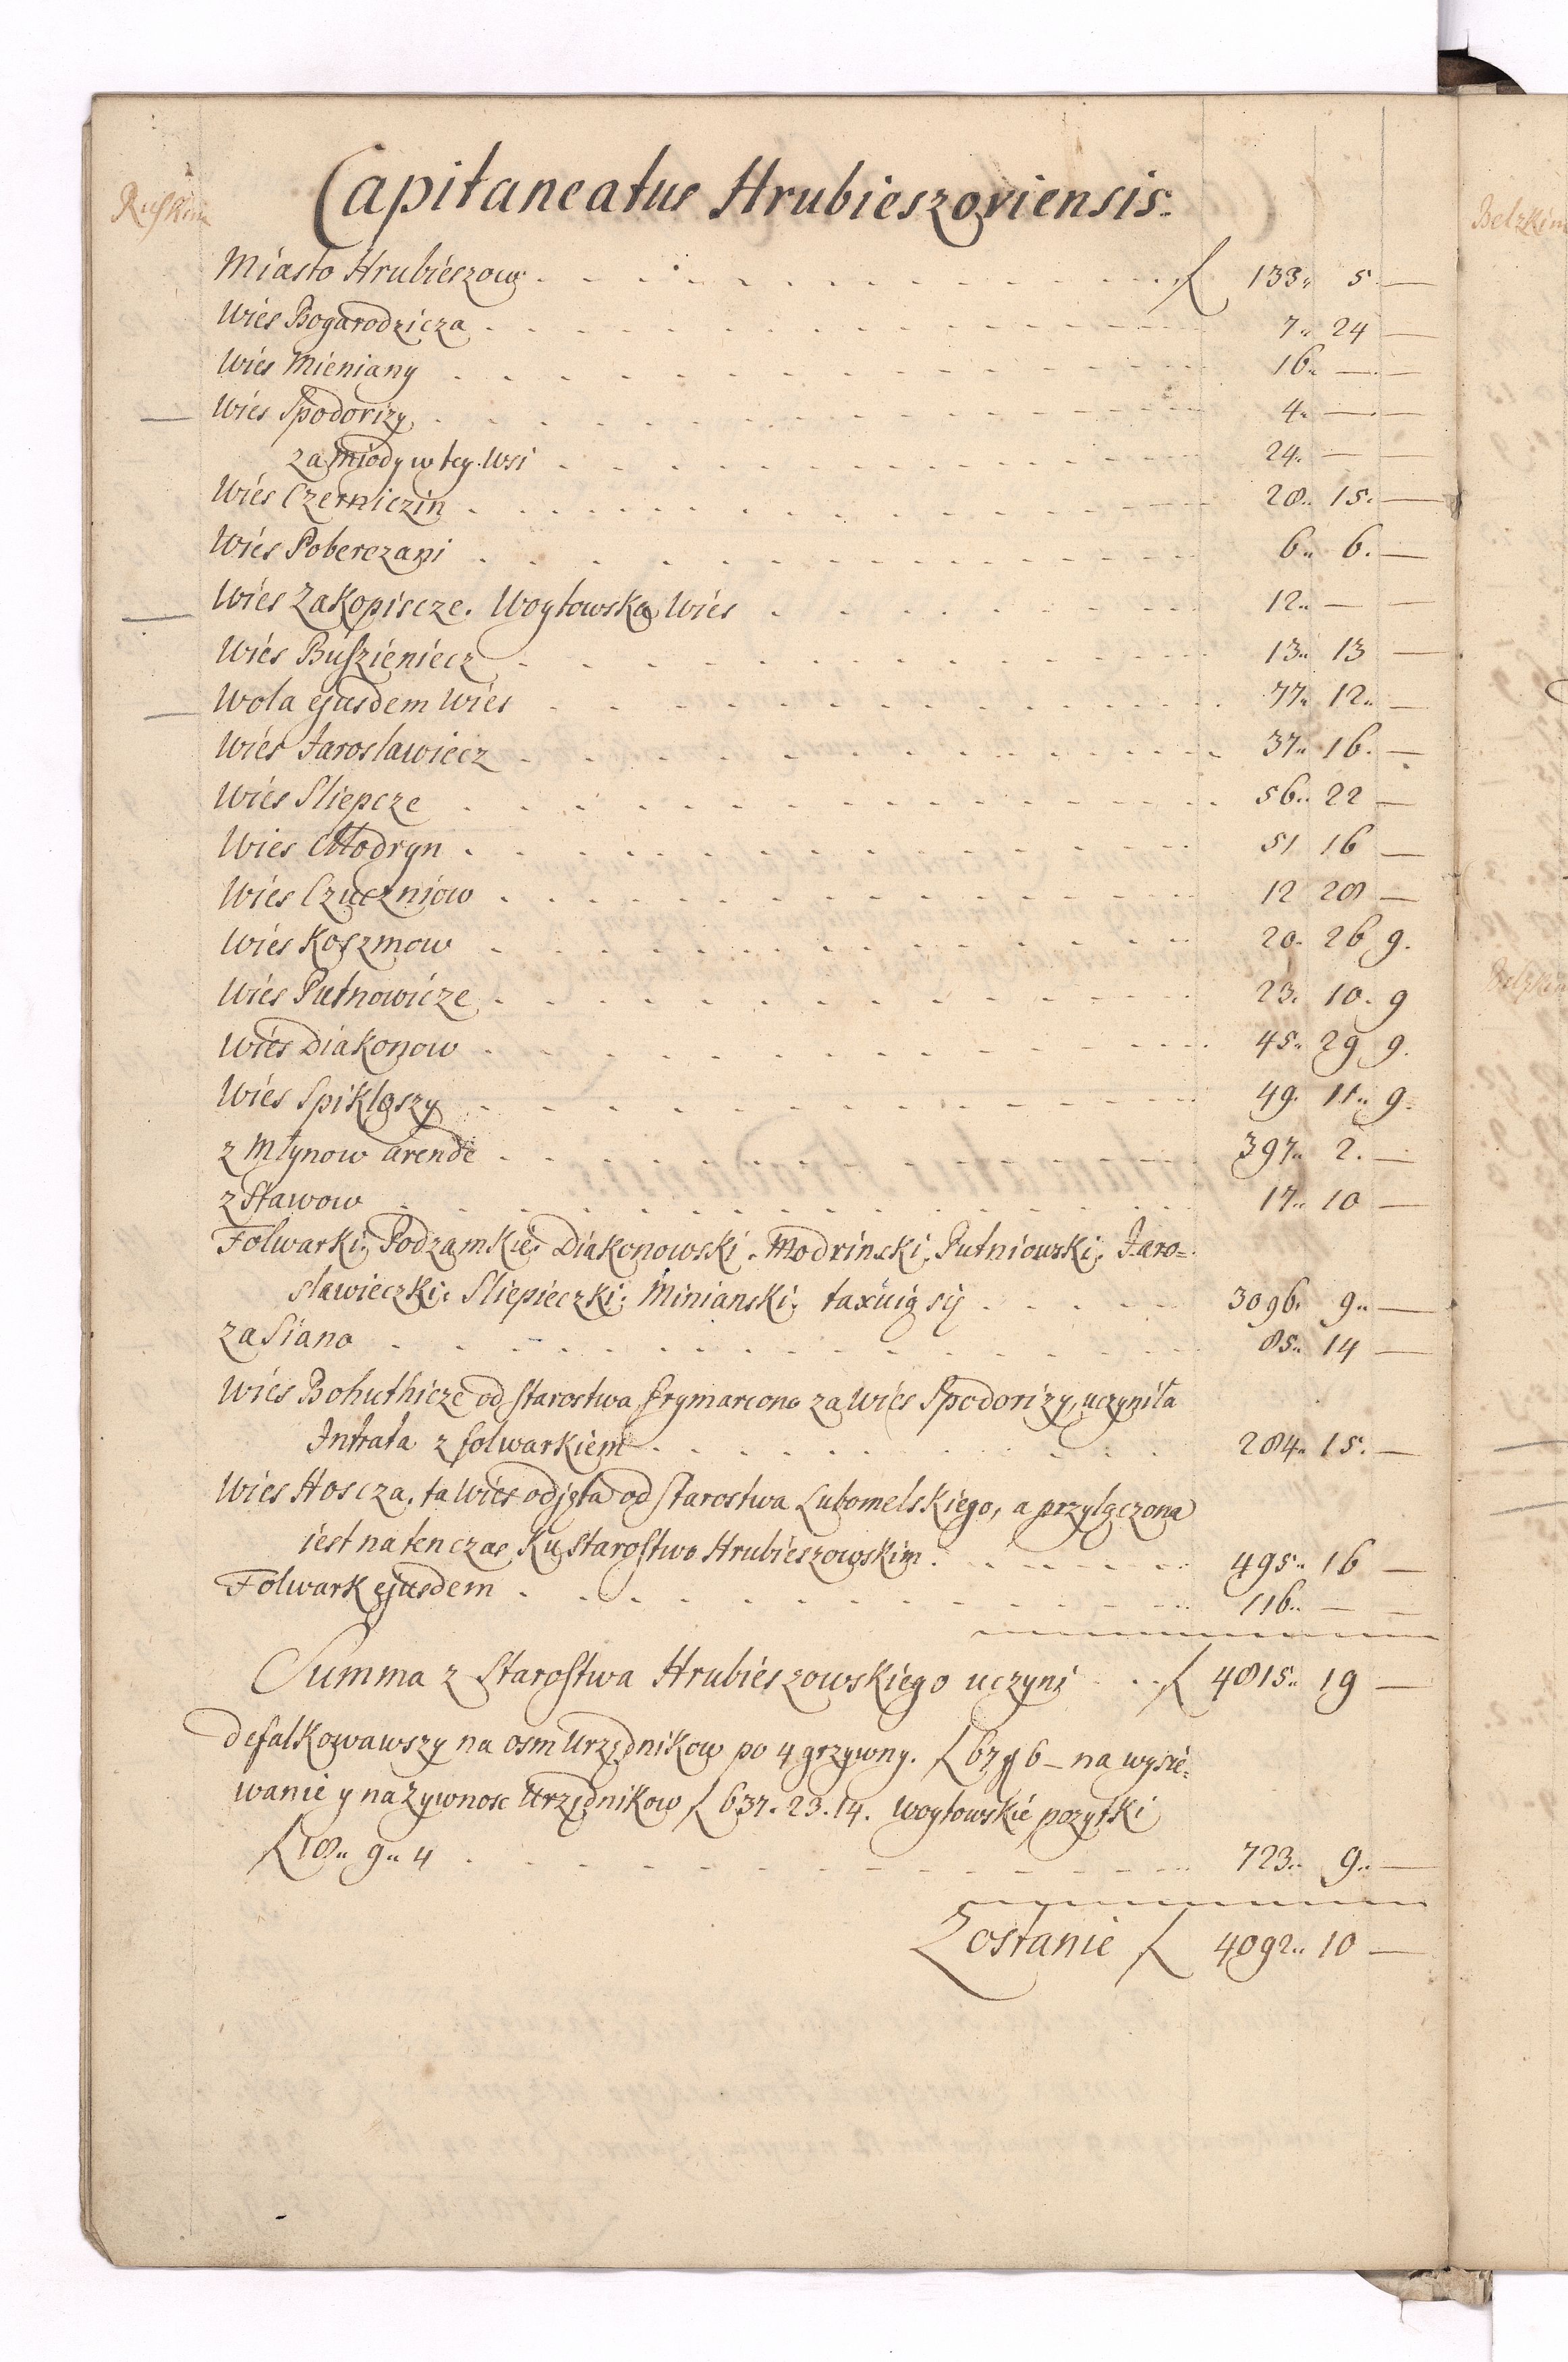 Capitaneatus Hrubieszoviensis.
Ruskim
Miasto Hrubieszow f 133 5 —
Wies Bogarodzicza 7 24 —
Wies Mieniany 16 — —
Wies Spodorizy 4 — —
za miody w tey Wsi 24 — —
Wies Czerniczin 28 15 —
Wies Poberezani 6 6 —
Wies Zakopiscze. Woytowska Wies 12 — —
Wies Buszieniecz 13 13 —
Wola ejusdem Wies 77 12 —
Wies Jaroslawiecz 37 16 —
Wies Sliepcze 56 22 —
Wies Modryn 51 16 —
Wies Czuczniow 12 28 —
Wies Koszmow 20 26 9
Wies Putnowicze 23 10 9
Wies Diakonow 45 29 9
Wies Spikloszy 49 11 9
z Młynow arendé 397 2 —
z Stawow 17 10 —
Folwarki, Podzamkie, Diakonowski, Modrinski, Putniowski, Jaro=
slawieczki, Sliepieczki, Minianski, taxuią sij 3096 9 —
za Siano 85 14 —
Wies Bohuthicze od Starostwa frymarcona za Wies Spodorizy, uczyniła
Intrata z folwarkiem 284 15 —
Wies Hoscza, ta Wies odjęta od Starostwa Lubomelskiego, a przyłączona
iest na ten czas Ku Starostwo Hrubieszowskim 495 16 —
Folwark ejusdem 116 — —
Summa z Starostwa Hrubieszowskiego uczyni f 4815 19 —
defalkowawszy na osm Urzędnikow po 4 grzywny. f 67 g 6 – na wysie=
wanie y na żywnosc Urzędnikow f 637. 23. 14. woytowskie pozytki
f 18 9 4 723 9 —
Zostanie f 4092 10 —
Belzkim